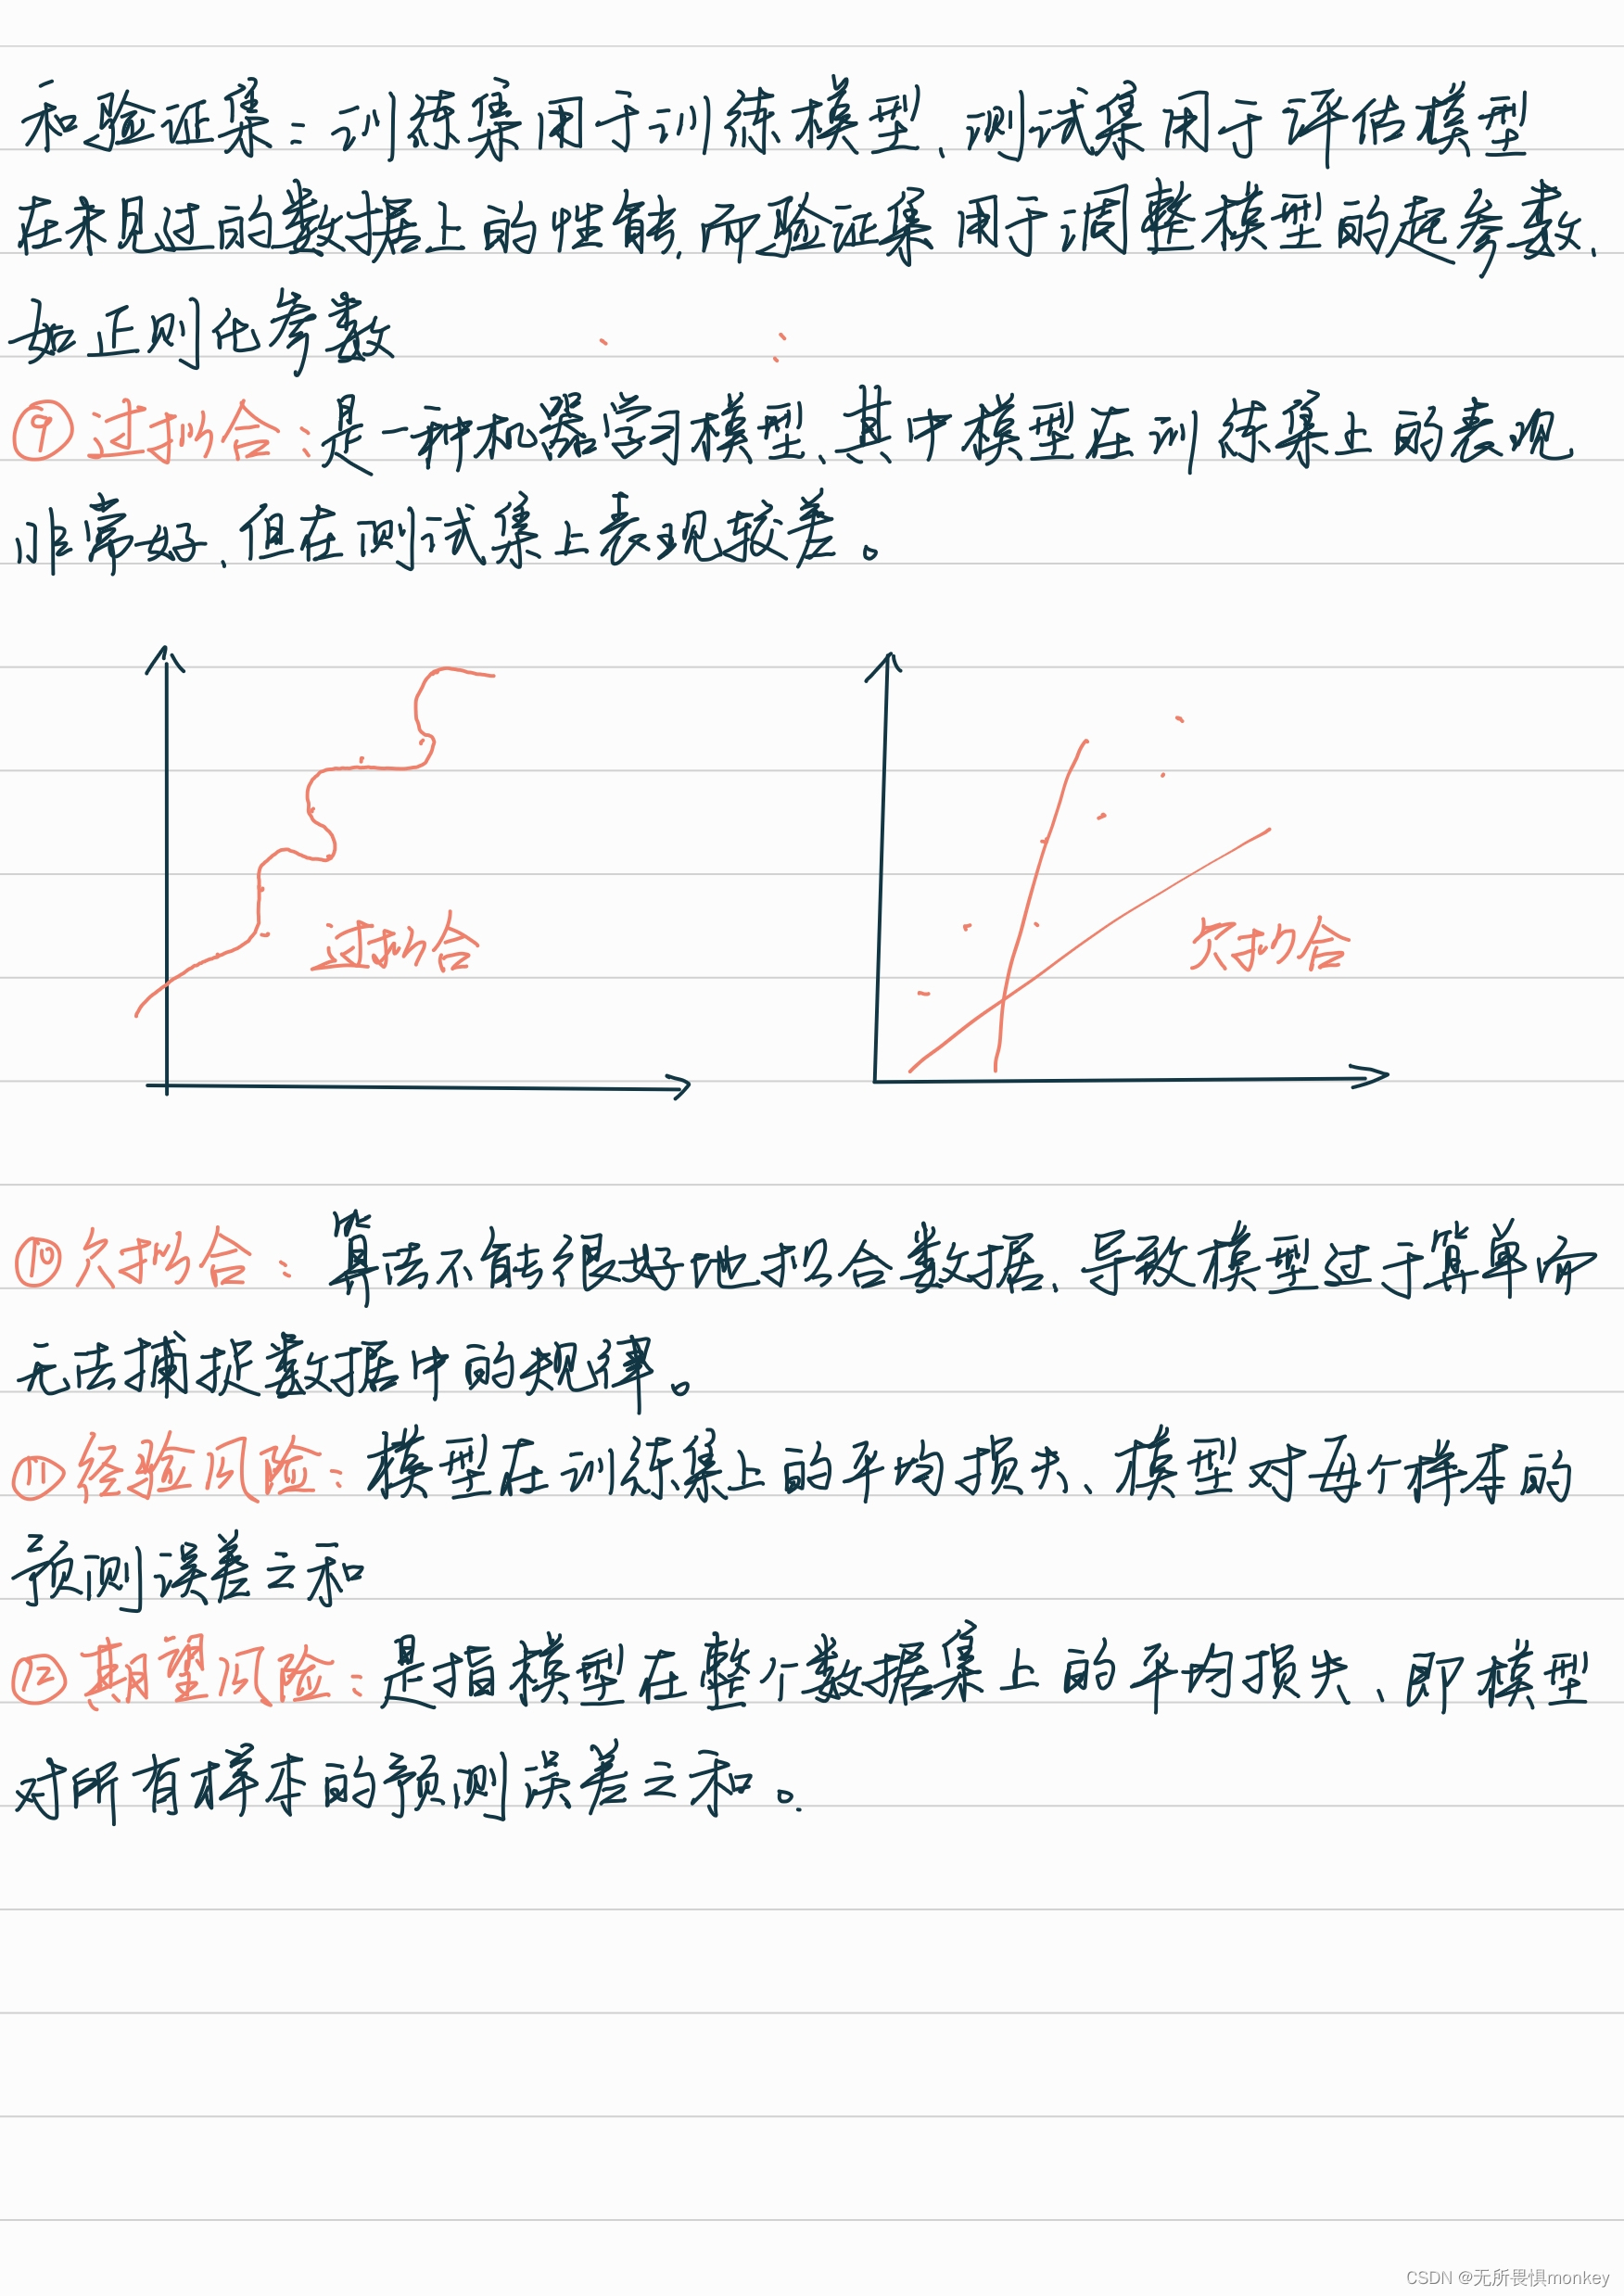 和验证集：训练集用于训练模型，测试集用于评估模型
在未见过的数据上的性能，而验证集用于调整模型的超参数，
如正则化参数
⑨过拟合：是一种机器学习模型，其中模型在训练集上的表现
非常好，但在测试集上表现较差。
过拟合
欠拟合
⑩欠拟合：算法不能很好地拟合数据，导致模型过于简单而
无法捕捉数据中的规律。
⑪经验风险：模型在训练集上的平均损失、模型对每个样本的
预测误差之和
⑫期望风险：是指模型在整个数据集上的平均损失、即模型
对所有样本的预测误差之和。
CSDN @无所畏惧monkey